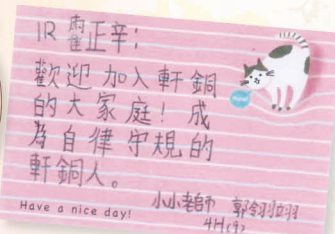 1R 霍正辛：
歡迎加入軒銅
的大家庭！成
為自律守規的
軒銅人。
小小老師 郭翎翊
4H(9)
Have a nice day!